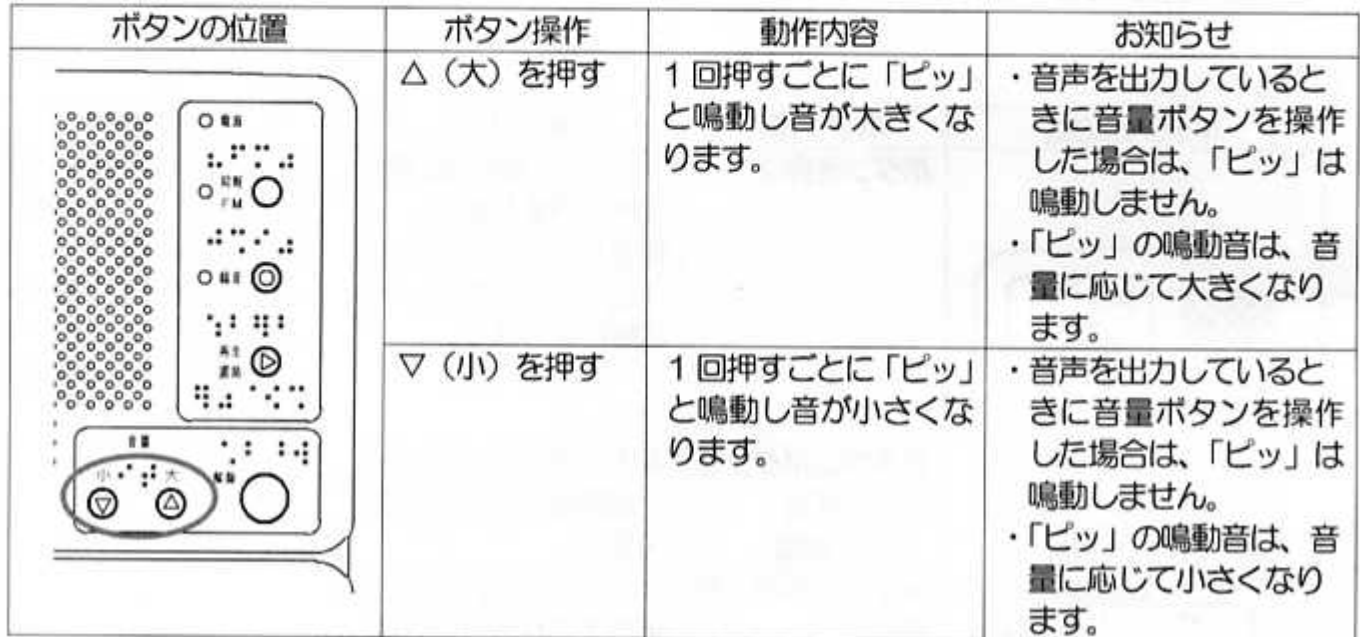 ボタンの位置
ボタン操作
動作内容
お知らせ
電源
FM
録音
再生
音量
小
大
解除
△（大）を押す
1回押すごとに「ピッ」
と鳴動し音が大きくな
ります。
・音声を出力していると
きに音量ボタンを操作
した場合は、「ピッ」は
鳴動しません。
・「ピッ」の鳴動音は、音
量に応じて大きくなり
ます。
▽（小）を押す
1回押すごとに「ピッ」
と鳴動し音が小さくな
ります。
・音声を出力していると
きに音量ボタンを操作
した場合は、「ピッ」は
鳴動しません。
・「ピッ」の鳴動音は、音
量に応じて小さくなり
ます。